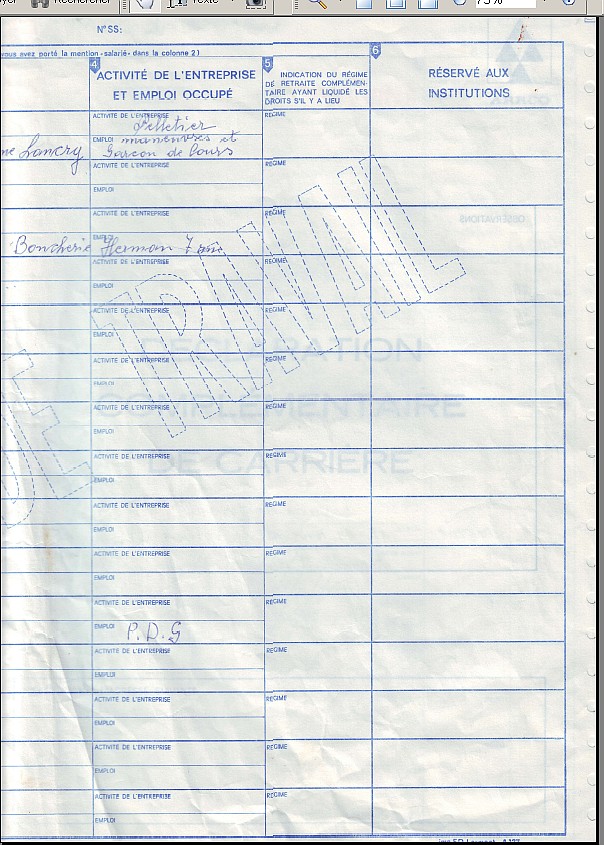 Rechercher
Texte
75%
N°SS:
vous avez porté la mention «salarié» dans la colonne 2)
4
ACTIVITÉ DE L'ENTREPRISE
ET EMPLOI OCCUPÉ
5
INDICATION DU RÉGIME
DE RETRAITE COMPLÉMEN-
TAIRE AYANT LIQUIDÉ LES
DROITS S'IL Y A LIEU
6
RÉSERVÉ AUX
INSTITUTIONS
ACTIVITÉ DE L'ENTREPRISE
REGIME
Pelletier
EMPLOI manœuvres et
Lancry Garçon de Cours
ACTIVITÉ DE L'ENTREPRISE
REGIME
EMPLOI
ACTIVITÉ DE L'ENTREPRISE
REGIME
OBSERVATIONS
EMPLOI
Boucherie Herman
ACTIVITÉ DE L'ENTREPRISE
REGIME
EMPLOI
ACTIVITÉ DE L'ENTREPRISE
REGIME
EMPLOI
DE TRAVAIL
DECLARATION
ACTIVITÉ DE L'ENTREPRISE
REGIME
EMPLOI
COMPLEMENTAIRE
ACTIVITÉ DE L'ENTREPRISE
REGIME
EMPLOI
DE CARRIERE
ACTIVITÉ DE L'ENTREPRISE
REGIME
EMPLOI
ACTIVITÉ DE L'ENTREPRISE
REGIME
EMPLOI
ACTIVITÉ DE L'ENTREPRISE
REGIME
EMPLOI
ACTIVITÉ DE L'ENTREPRISE
REGIME
EMPLOI P.D.G
ACTIVITÉ DE L'ENTREPRISE
REGIME
EMPLOI
ACTIVITÉ DE L'ENTREPRISE
REGIME
EMPLOI
ACTIVITÉ DE L'ENTREPRISE
REGIME
EMPLOI
ACTIVITÉ DE L'ENTREPRISE
REGIME
EMPLOI